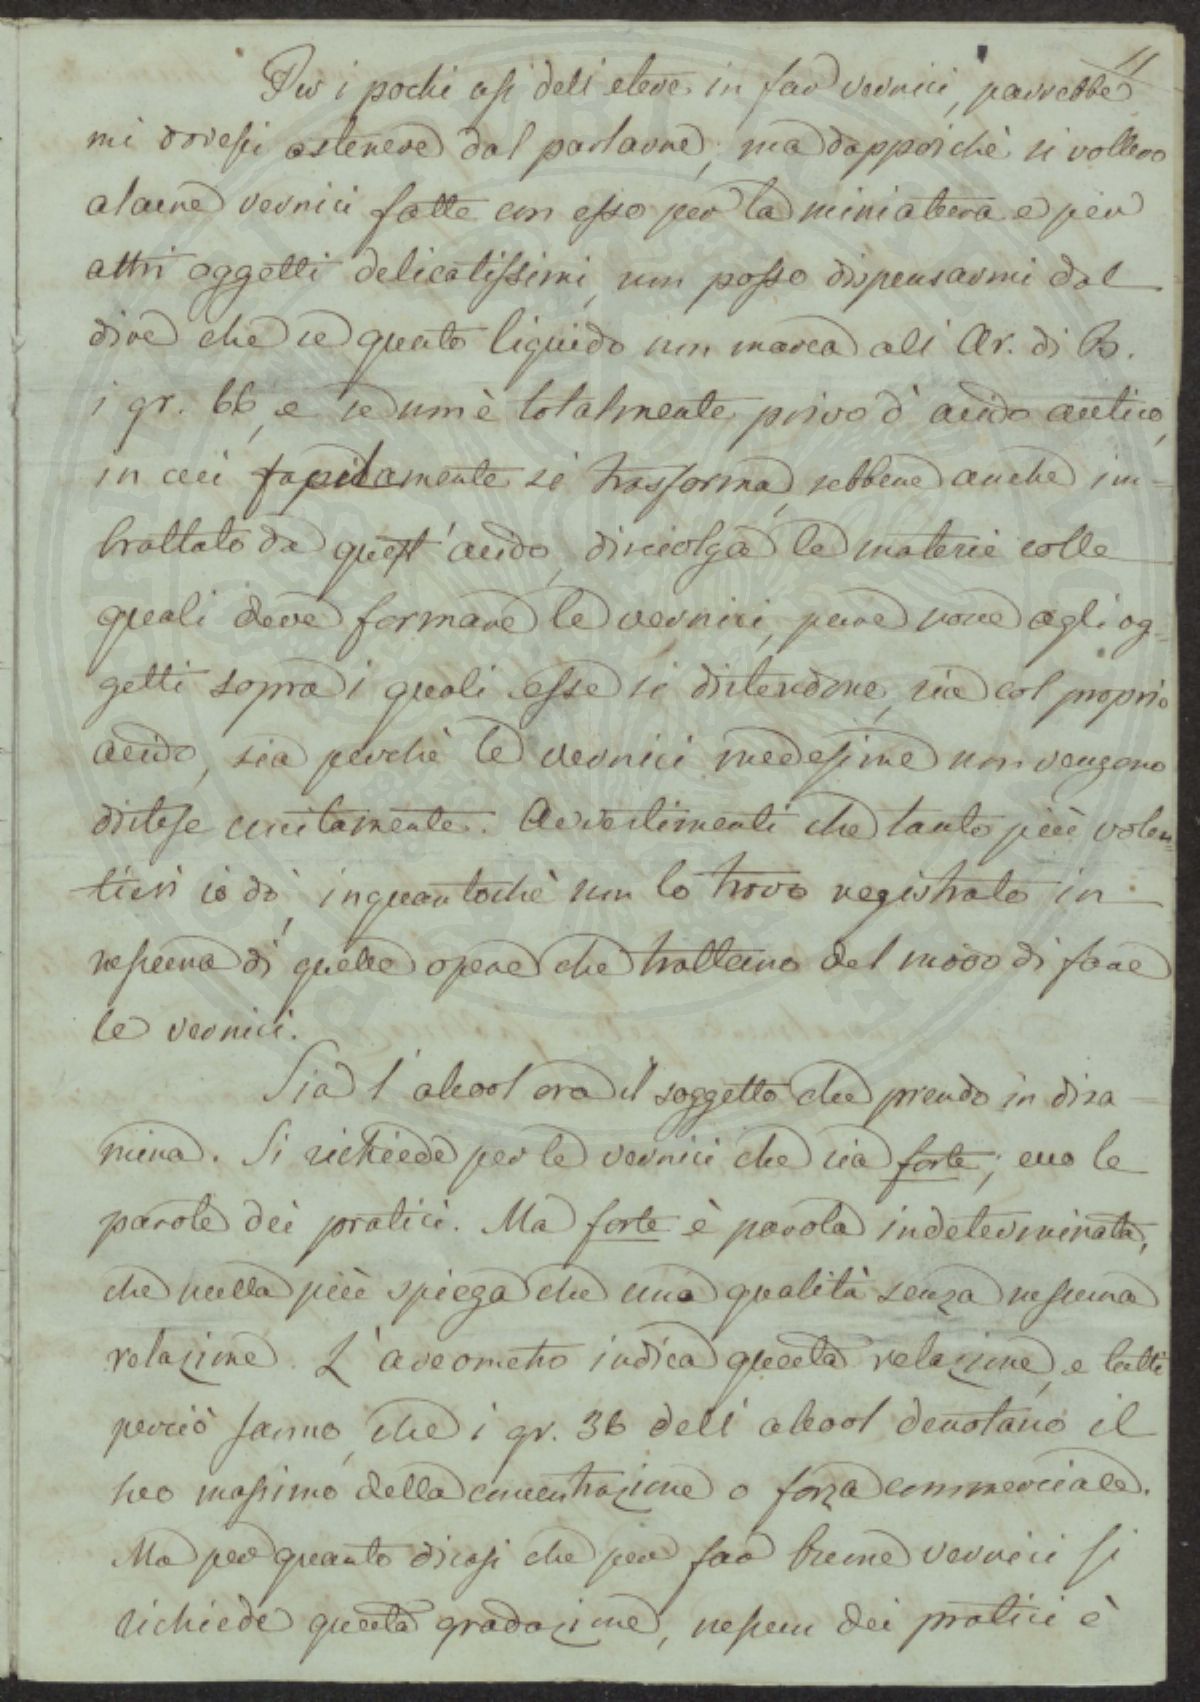 11
Per i pochi usi dell'etere in far vernici, parrebbe
mi dovessi astenere dal parlarne; ma dappoichè si vollero
alcune vernici fatte con esso per la miniatura e per
altri oggetti delicatissimi, non posso dispensarmi dal
dire che se questo liquido non marca all'Ar. di B.
i gr. 66, e se non è totalmente privo d'acido acetico,
in cui rapidamente si trasforma, sebbene anche im=
brattato da quest'acido, disciolga le materie colle
quali deve formare le vernici, pure nuoce agli og=
getti sopra i quali esse si distendono, sia col proprio
acido, sia perchè le vernici medesime non vengono
distese unitamente. Avvertimenti che tanto più volen=
tieri io do, inquantochè non lo trovo registrato in
nessuna di quelle opere che trattano del modo di fare
le vernici.
Sia l'alcool ora il soggetto che prendo in disa
mina. Si richiede per le vernici che sia forte; ecco le
parole dei pratici. Ma forte è parola indeterminata,
che nulla più spiega che una qualità senza nessuna
relazione. L'areometro indica questa relazione, e tutti
perciò sanno, che i gr. 36 dell'alcool denotano il
suo massimo della concentrazione o forza commerciale.
Ma per quanto dicasi che per far buone vernici si
richiede questa gradazione, nessun dei pratici è